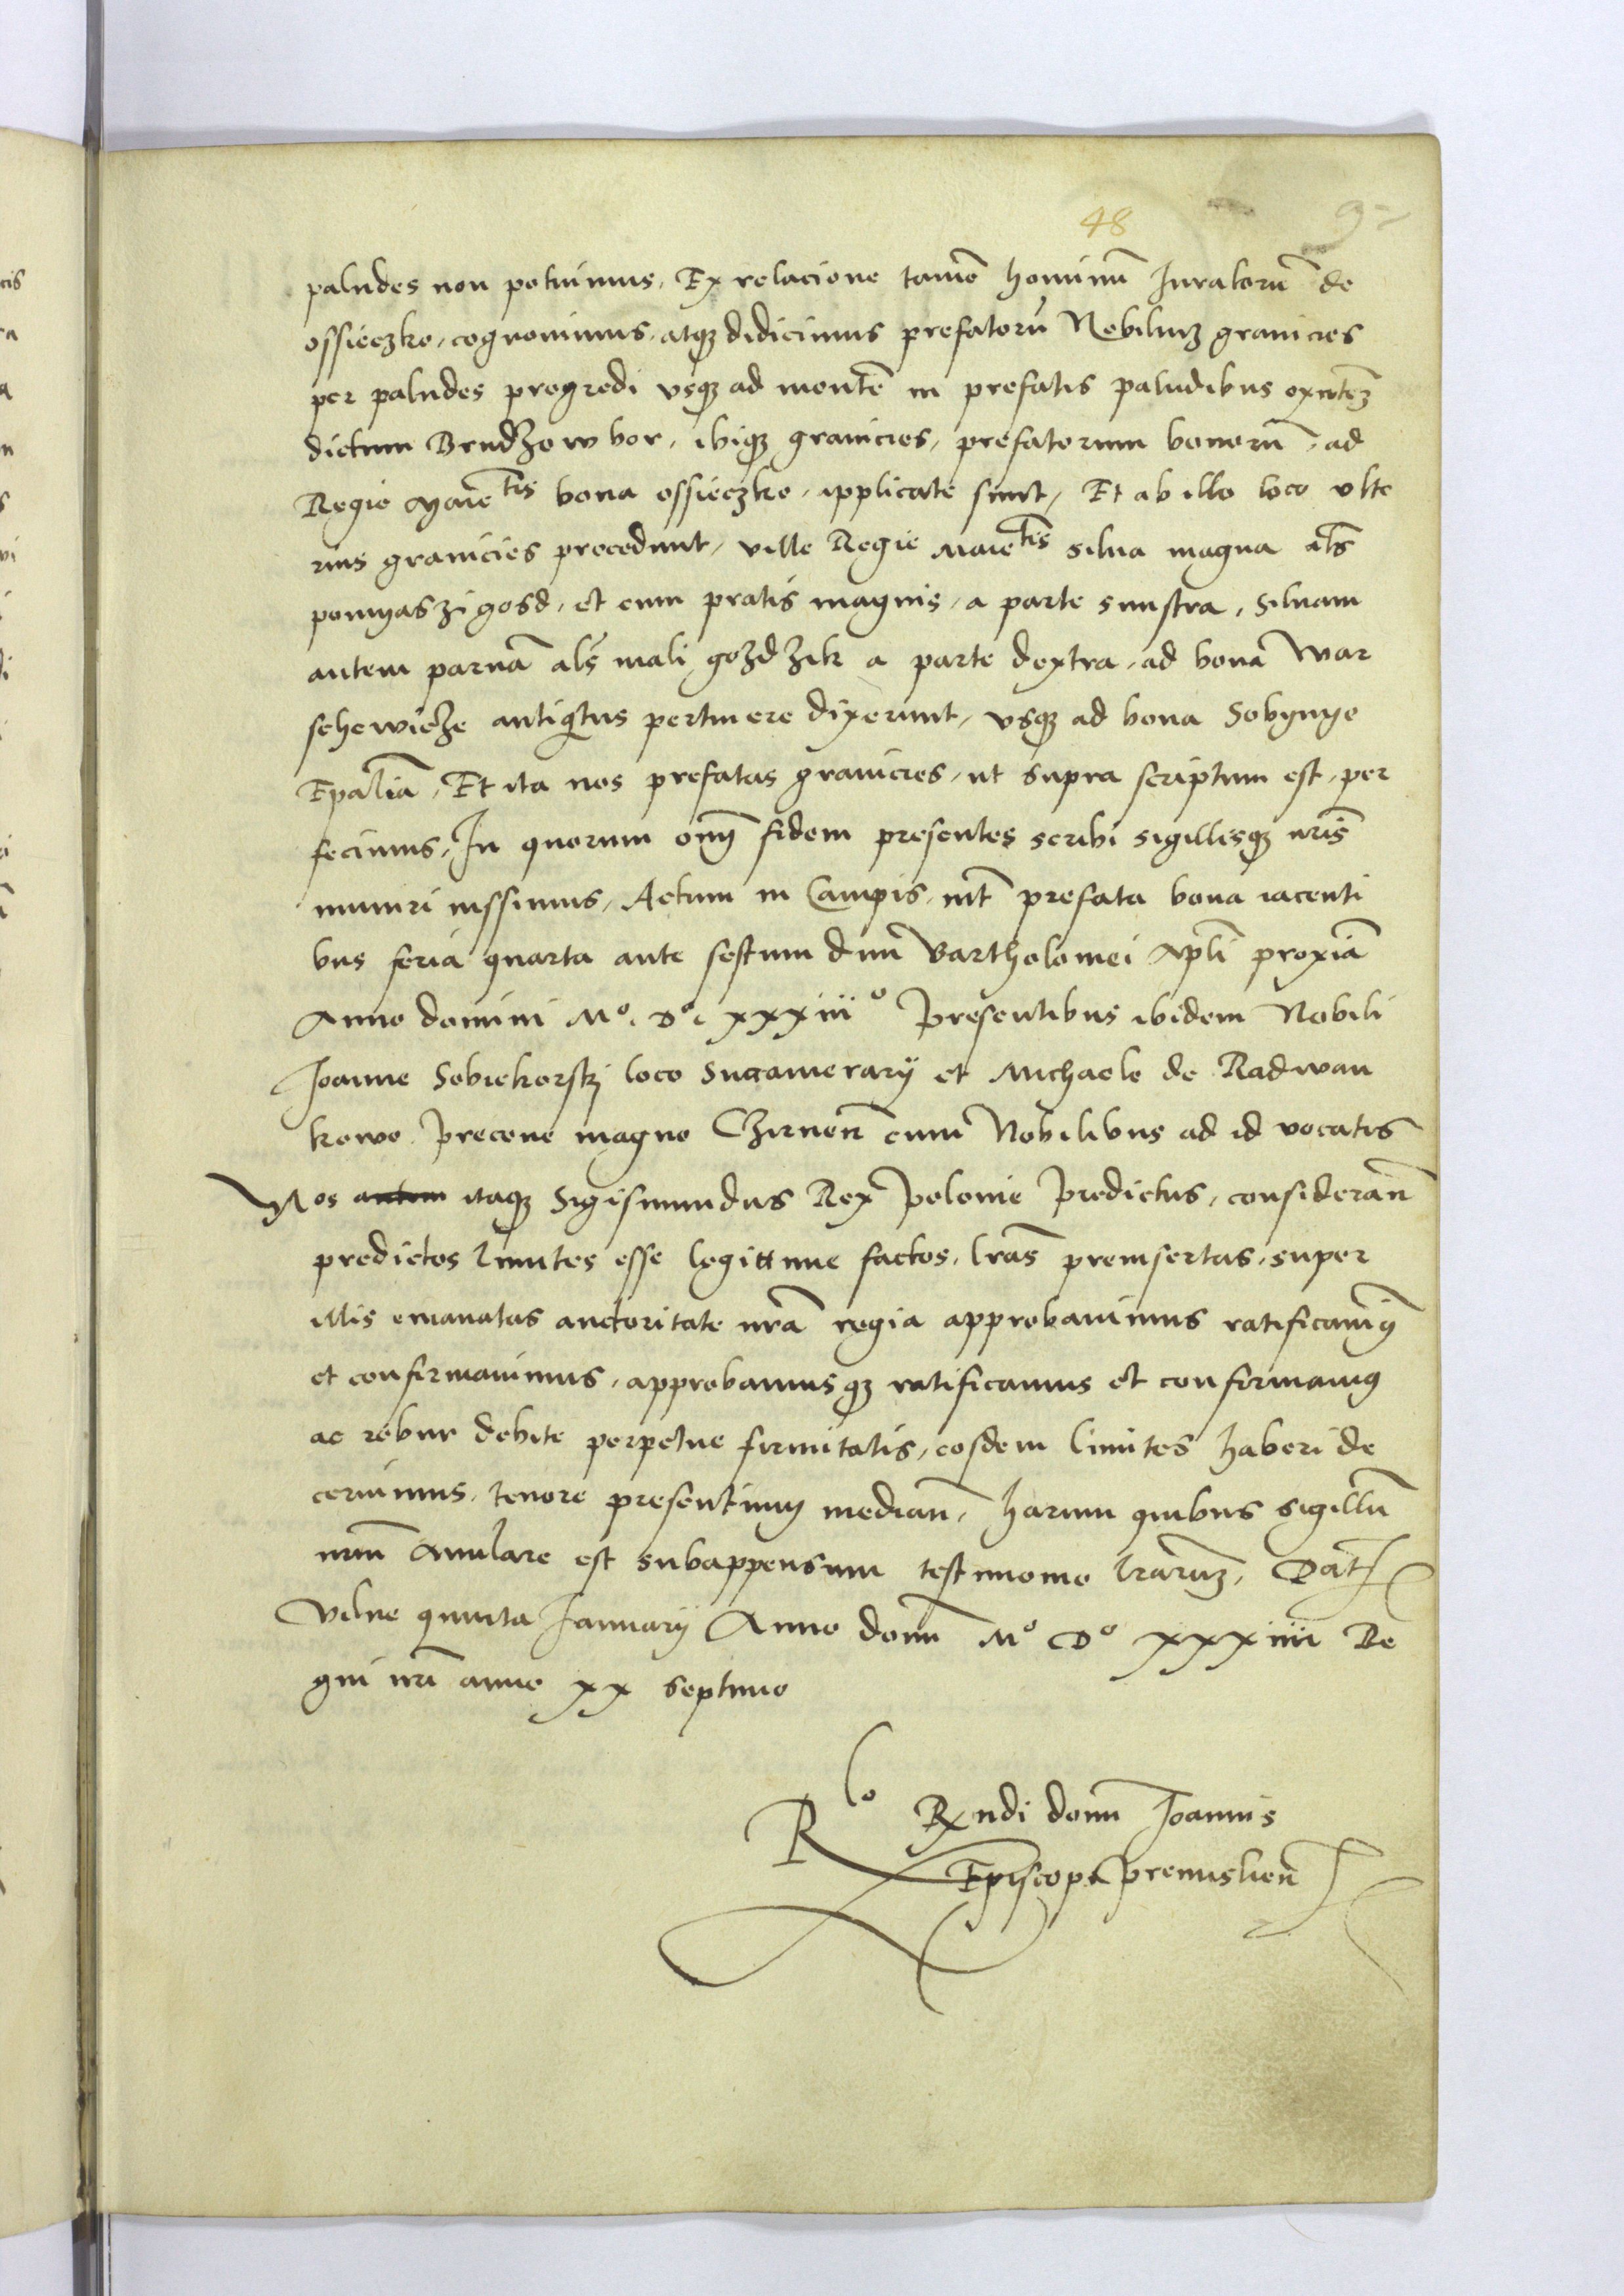 48
paludes non potuimus, Ex relacione tamē hominū Juratorū de
ossieczko, cognovimus, atqʒ didicimus prefatorū Nobiliuʒ granicies
per paludes progredi usqʒ ad montē in prefatis paludibus existeʒ
dictum Brudzow bor, ibiqʒ granicies, prefatorum bonorū, ad
Regie Maietis bona ossieczko, applicate sunt, Et ab illo loco ulte
rius granicies procedunt, ville Regie Maietis silva magna als
pomyaszi gosd, et cum pratis magnis, a parte sinistra, silvam
autem parvā als mali gozdzik a parte dextra, ad bona War
schewicze antiqitus pertinere dixerunt, usqʒ ad bona Sobynye
Epalia, Et ita nos prefatas granicies, ut supra scriptum est, per
fecimus, In quorum omī fidem presentes scribi sigillisqʒ nris
muniri iussimus, Actum in Campis, int prefata bona iacenti
bus feria quarta ante festum divi Bartholomei Apli proxia
Anno domini Mº. Dº. xxxiiiº Presentibus ibidem Nobili
Joanne Sobiekorskj loco Succamerarij et Michaele de Radwan
kowo Precone magno Czirnen̄ cum Nobilibus ad id vocatis
Nos autem itaqʒ Sigismundus Rex Polonie Predictus, consideran̄
predictos limites esse legittime factos, lras preinsertas, super
illis emanatas auctoritate nrā regia approbavimus ratificavimꝰ
et confirmavimus, approbamusqʒ ratificamus et confirmamꝰ
ac robur debite perpetue firmitatis, eosdem limites haberi de
cernimus, tenore presentium median̄, harum quibus sigillū
nrum Anulare est subappensum testimonio lraruʒ, Dat
Vilne quinta Januarij Anno domī Mº Dº xxxiiii Re
gni nri anno xx septimo
Rlo Rxndi domī Joannis
Episcopi Premislien̄